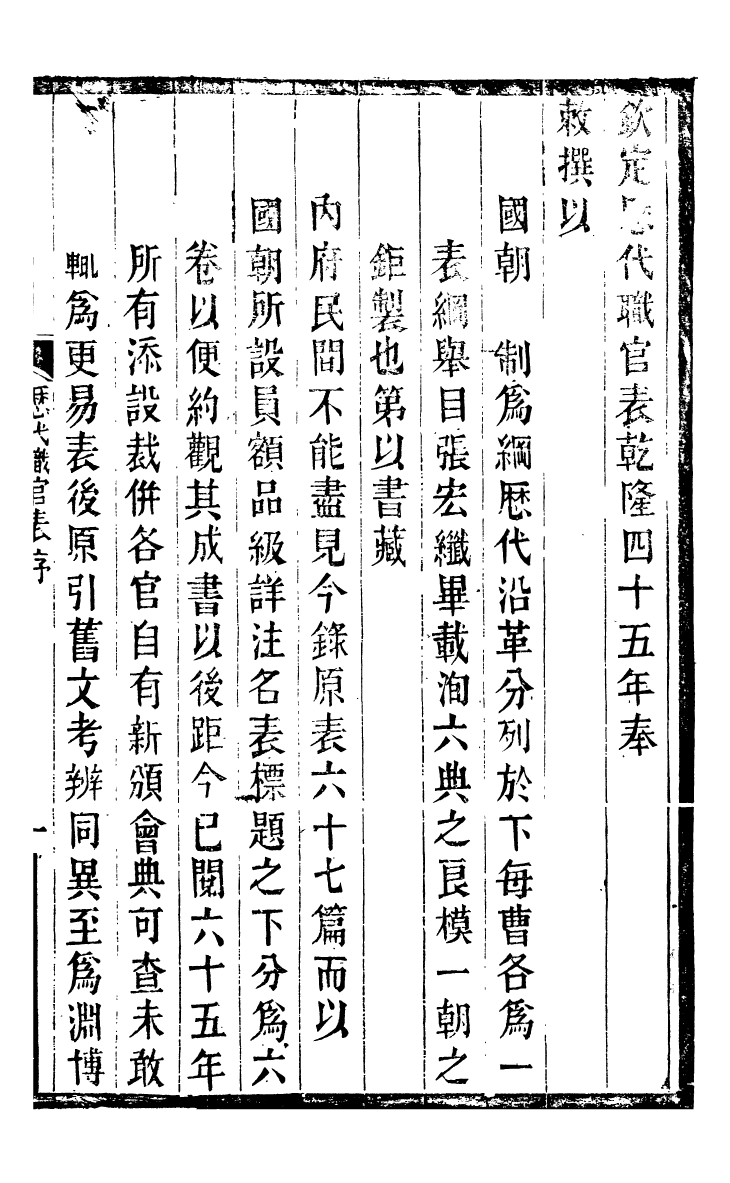 欽定歷代職官表乾隆四十五年奉
敕撰以
國朝 制爲綱歷代沿革分列於下每曹各爲一
表綱舉目張宏纖畢載洵六典之良模一朝之
鉅製也第以書藏
內府民間不能盡見今錄原表六十七篇而以
國朝所設員額品級詳注名表標題之下分爲六
卷以便約觀其成書以後距今已閱六十五年
所有添設裁併各官自有新頒會典可查未敢
輒爲更易表後原引舊文考辨同異至爲淵博
歷代職官表序
一